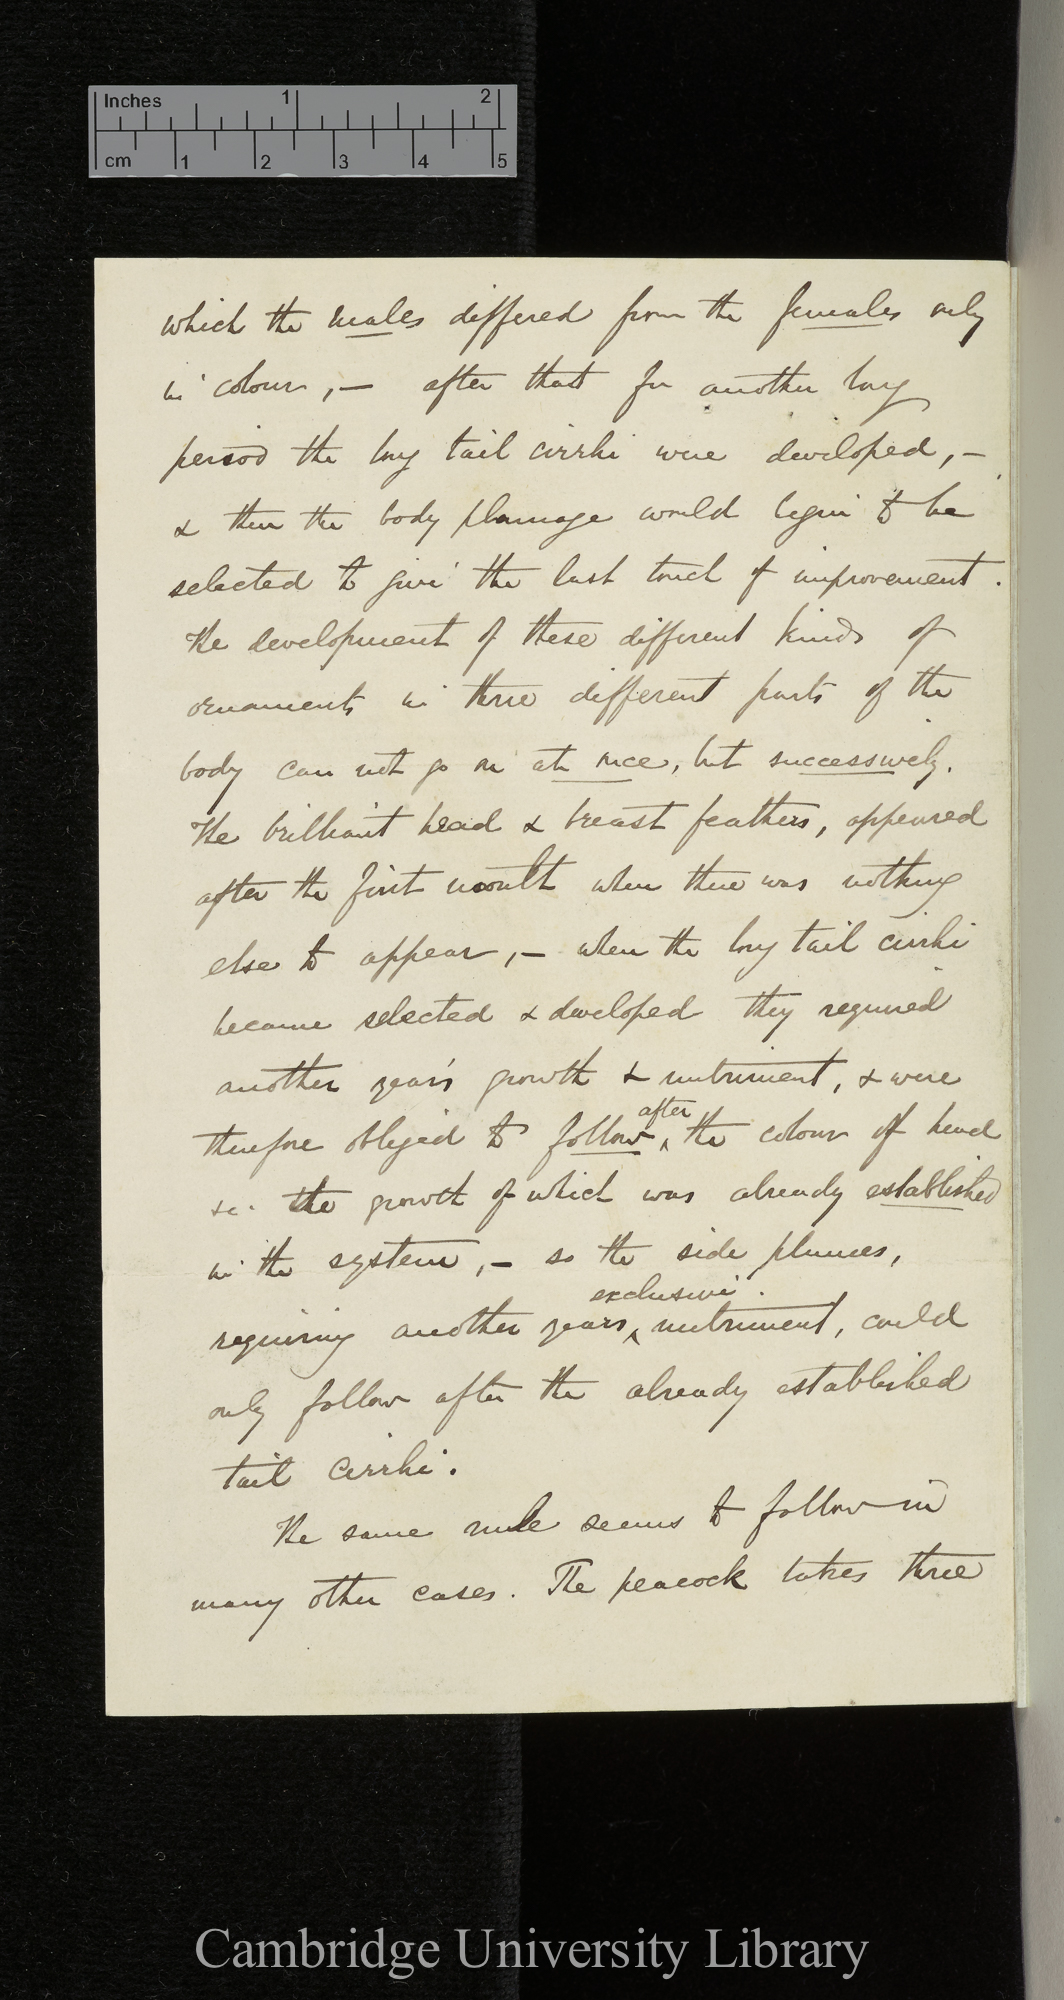 Inches 1 2
cm 1 2 3 4 5
which the males differed from the females only
in colour, – after that for another long
period the long tail cirrhi were developed, –
& then the body plumage would begin to be
selected to give the last touch of improvement.
The development of these different kinds of
ornaments in three different parts of the
body can not go on at once, but successively.
The brilliant head & breast feathers, appeared
after the first moult when there was nothing
else to appear, – when the long tail cirrhi
became selected & developed they required
another year's growth & nutriment, & were
after
therefore obliged to follow ‸ the colour of head
&c. the growth of which was already established
in the system, – so the side plumes,
exclusive
requiring another years ‸ nutriment, could
only follow after the already established
tail cirrhi.
The same rule seems to follow in
many other cases. The peacock takes three
Cambridge University Library